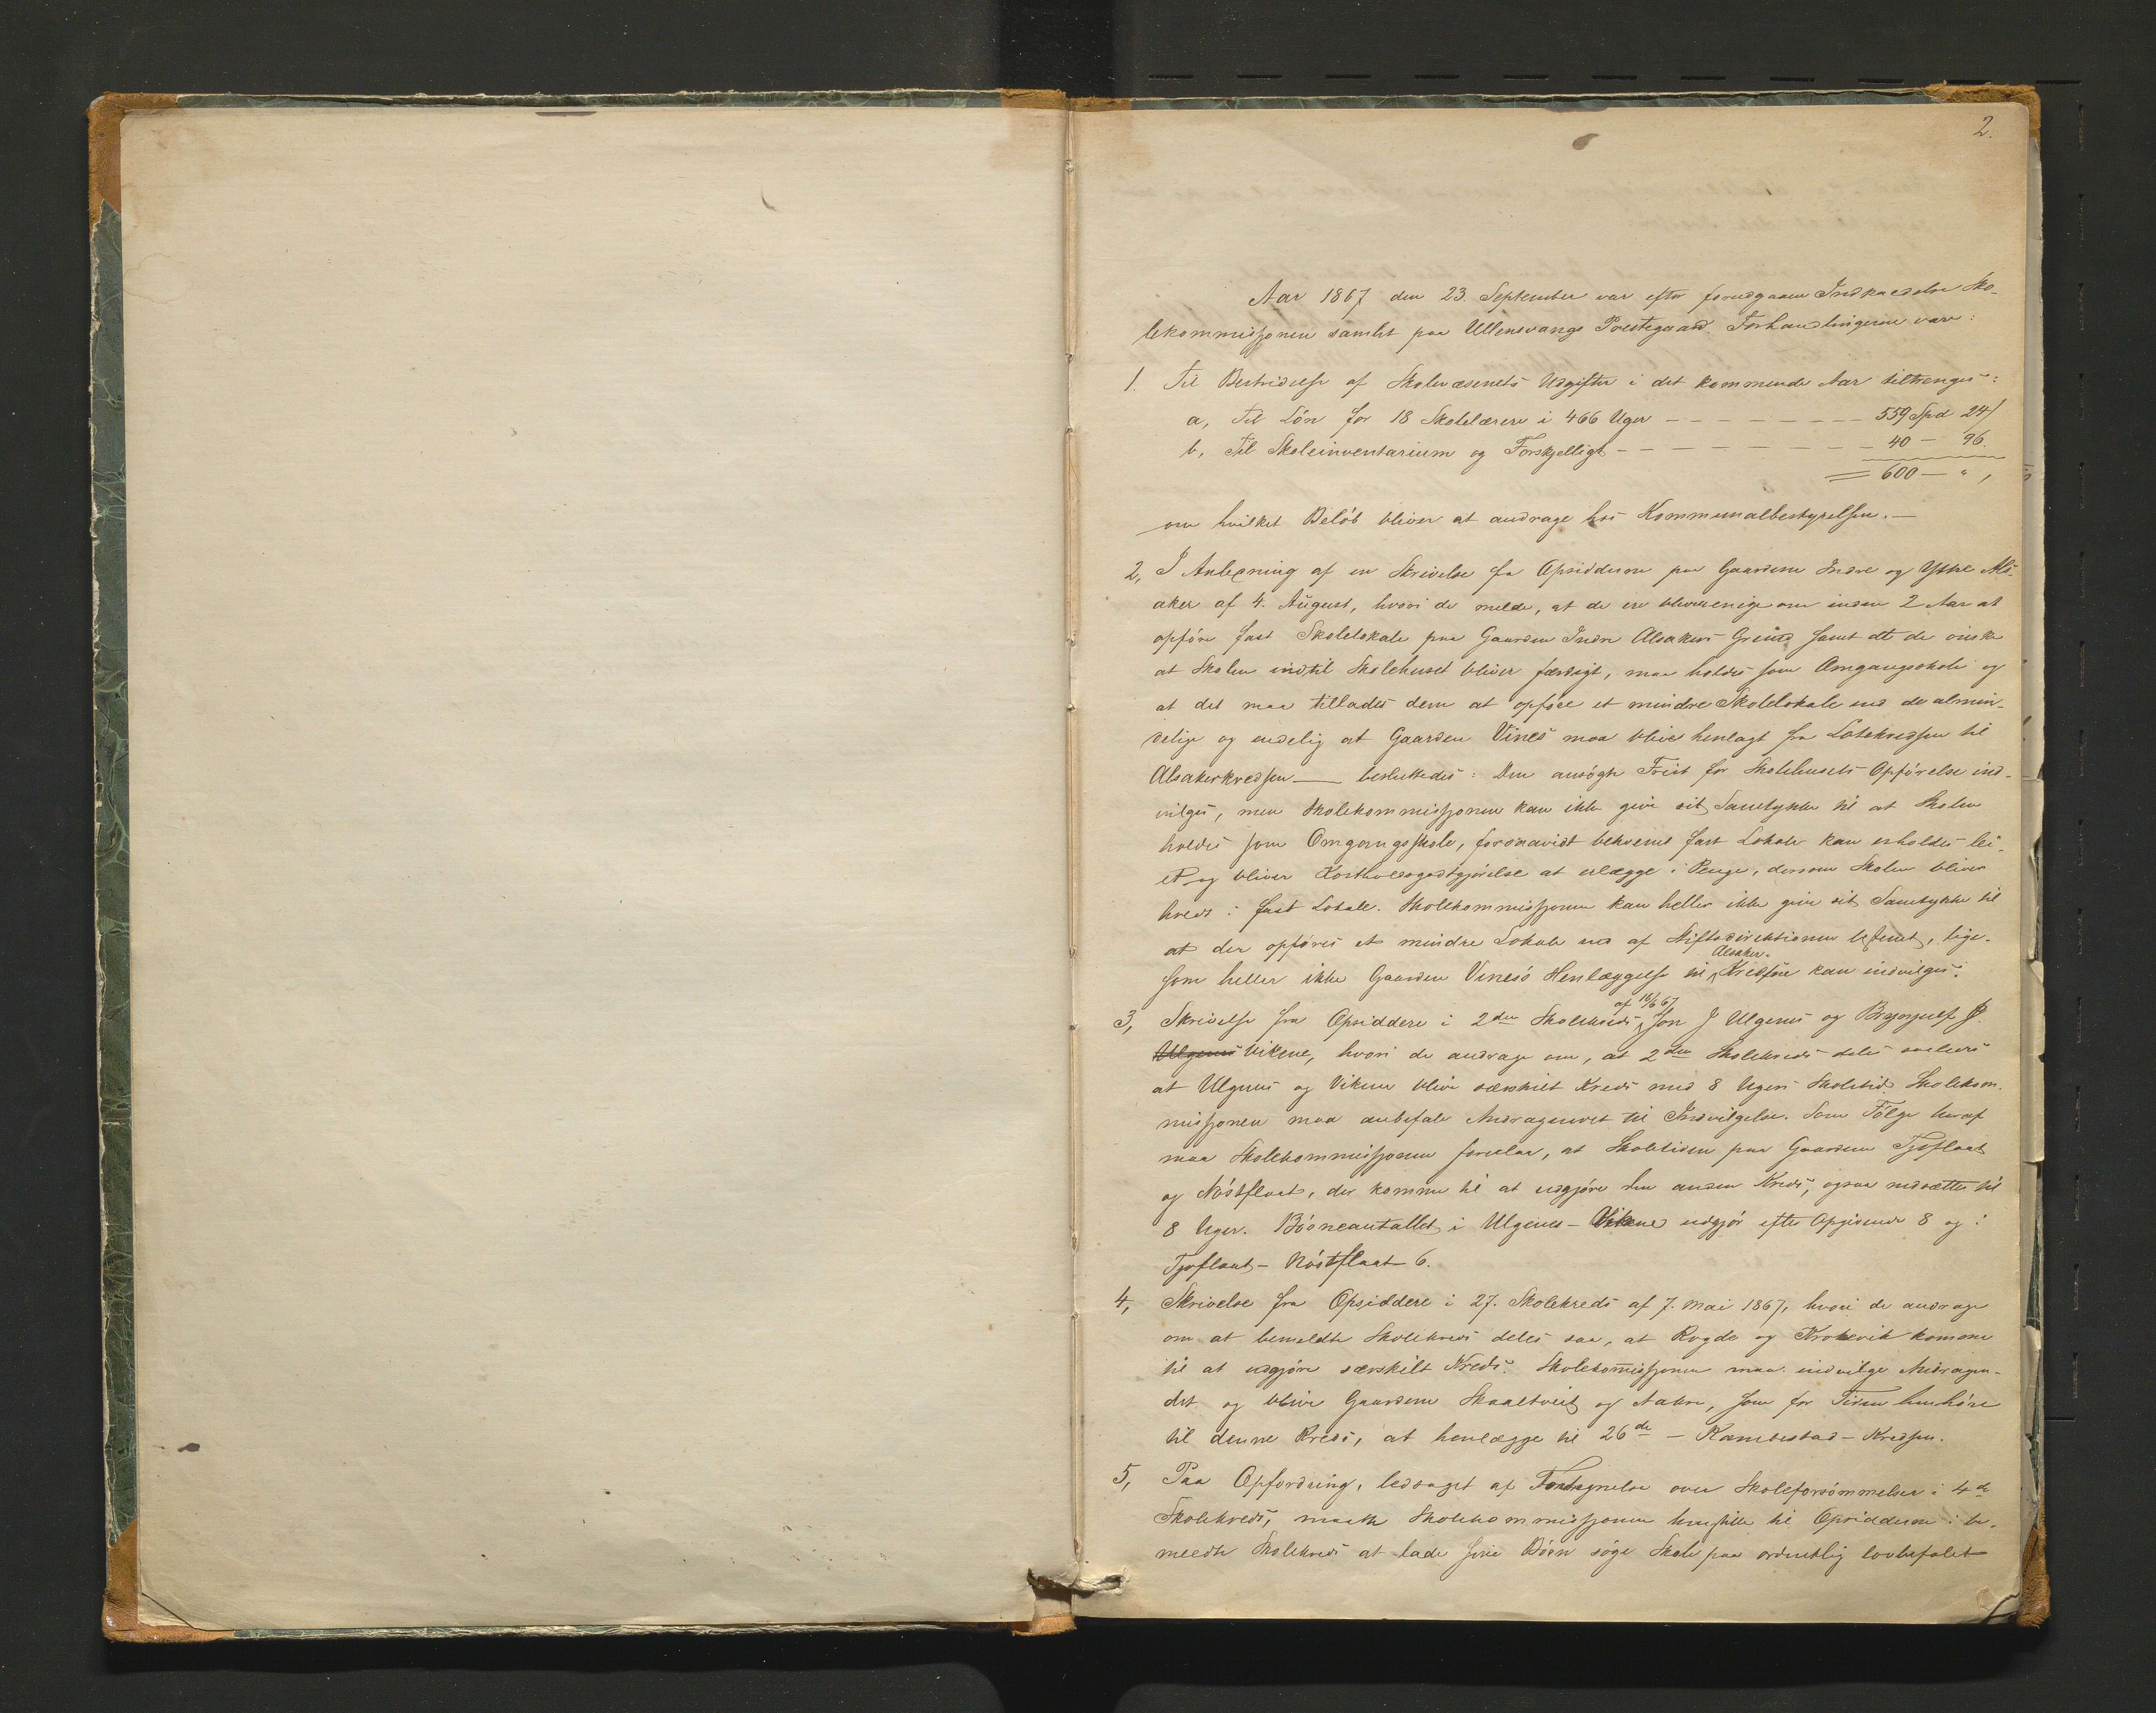 2.
Aar 1867 den 23. September var efter forudgaaen Indkaldelse Sko-
lekommissjonen samlet paa Ullensvangs Prestegaard. Forhandlingerne vare:
1. Til Bestridelse af Skolevæsenets Udgifter i det kommende Aar tiltrenges:
a, Til Lön for 18 Skolelærere i 466 Uger — — — — — — 559 Spd 24 /
b, Til Skoleinventarium og Forskjelligt — — — — — — 40 — 96.
= 600 — " ,
om hvilket Belöb bliver at andrage hos Kommunalbestyrelsen. —
2, I Anledning af en Skrivelse fra Opsidderne paa Gaardene Indre og Ytre Als-
aker af 4. August, hvori de melde, at de ere blevne enige om inden 2 Aar at
opföre fast Skolelokale paa Gaarden Indre Alsakers Grund samt at de önske
at Skolen indtil Skolehuset bliver færdigt, maa holdes som Omgangsskole og
at det maa tillades dem at opföre et mindre Skolelokale end de almin-
delige og endelig at Gaarden Vines maa blive henlagt fra Lotekredsen til
Alsakerkredsen — besluttedes: Den ansögte Frist for Skolehusets Opförelse ind-
vilges, men Skolekommissjonen kan ikke give sit Samtykke til at Skolen
holdes som Omgangsskole, forsaavidt bekvemt fast Lokale kan erholdes lei-
et og bliver Kostholdsgodtgjörelse at erlægge i Penge, dersom Skolen bliver
holdt i fast Lokale. Skolekommissjonen kan heller ikke give sit Samtykke til
at der opföres et mindre Lokale end af Stiftsdirektionen bestemt, lige-
som heller ikke Gaarden Vines's Henlæggelse til Alsaker-Kredsen kan indvilges.
3, Skrivelse fra Opsiddere i 2den Skolekreds af 16/6 67, Jon J Ulgenes og Brynjulf J.
Ulgenes Vikene, hvori de andrage om, at 2den Skolekreds deles saaledes
at Ulgenes og Vikene blive særskilt Kreds med 8 Ugers Skoletid. Skolekom-
missjonen maa anbefale Andragendet til Indvilgelse. Som Fölge heraf
maa Skolekommissjonen foreslaa, at Skoletiden paa Gaardene Tjoflaat
og Nöstflaat, der komme til at udgjöre den anden Kreds, ogsaa nedsættes til
8 Uger. Börneantallet i Ulgenes-Vikene udgjör efter Opgivende 8 og i
Tjoflaat-Nöstflaat 6.
4, Skrivelse fra Opsiddere i 27. Skolekreds af 7. Mai 1867, hvori de andrage
om at bemeldte Skolekreds deles saa, at Rogde og Krokevik komme
til at udgjöre særskilt Kreds. Skolekommissjonen maa indvilge Andragen-
det og blive Gaardene Skaaltveit og Aakre, som for Tiden henhöre
til denne Kreds, at henlægge til 26de — Kambestad-Kredsen.
5, Paa Opfordring, ledsaget af Fortegnelse over Skoleforsömmelser i 4de
Skolekreds, maatte Skolekommissjonen henstille til Opsidderne i be-
meldte Skolekreds at lade sine Börn söge Skole paa ordentlig lovbefalet